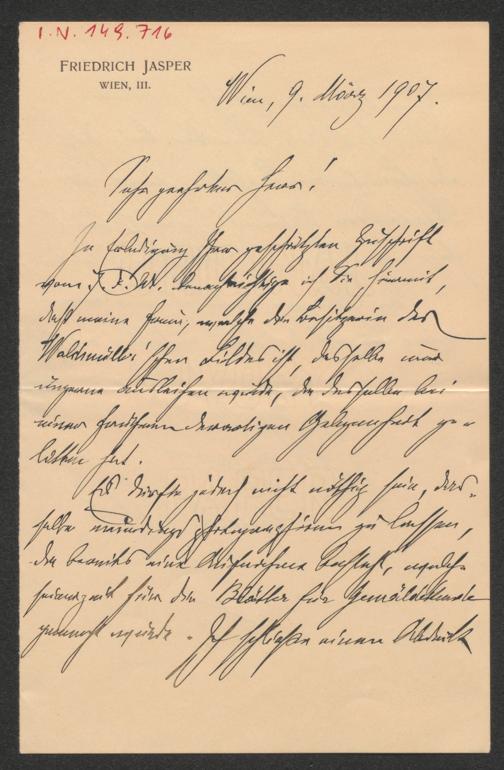 I.N. 149.716
FRIEDRICH JASPER
WIEN, III.
Wien, 9. März 1907.
Sehr geehrter Herr!
In Erledigung Ihrer geschätzten Zuschrift
vom d. M. benachrichtige ich Sie hiemit,
daß meine Frau, welche die Besitzerin des
Waldmüller'schen Bildes ist, dasselbe nur
ungerne ausleihen würde, da dasselbe bei
einer früheren derartigen Gelegenheit ge-
litten hat.
Es dürfte jedoch nicht nöthig sein, das-
selbe neuerdings photographieren zu lassen,
da bereits eine Aufnahme besteht, welche
seinerzeit für die Blätter für Gemäldekunde
gemacht wurde. Ich schließe einen Abdruck